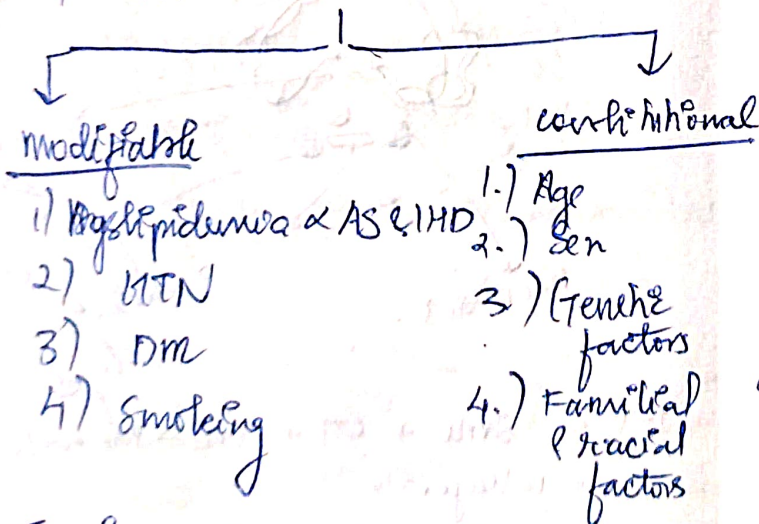 modifiable
1) Dyslipidemia ∝ AS & IHD
2) HTN
3) DM
4) Smoking
constitutional
1.) Age
2.) Sex
3.) Genetic
factors
4.) Familial
& racial
factors